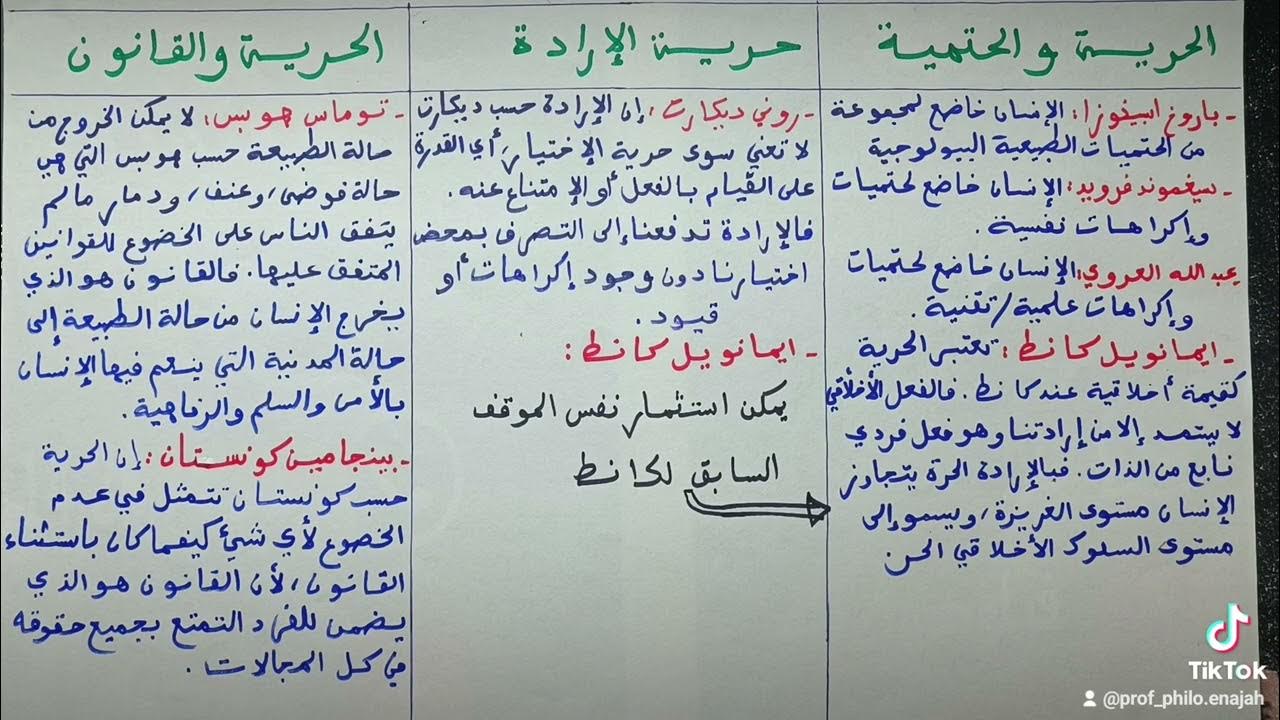 الحرية والحتمية
- باروخ اسبينوزا: الإنسان خاضع لمجموعة
من الحتميات الطبيعية البيولوجية
- سيغموند فرويد: الإنسان خاضع لحتميات
وإكراهات نفسية.
عبد الله العروي: الإنسان خاضع لحتميات
وإكراهات علمية/تقنية.
- ايمانويل كانط: تعتبر الحرية
كقيمة أخلاقية عند كانط. فالفعل الأخلاقي
لا يستمد إلا من إرادتنا وهو فعل فردي
نابع من الذات. فبالإرادة الحرة يتجاوز
الإنسان مستوى الغريزة، ويسمو إلى
مستوى السلوك الأخلاقي الحر
حرية الإرادة
- روني ديكارت: إن الإرادة حسب ديكارت
لا تعني سوى حرية الإختيار، أي القدرة
على القيام بالفعل أو الإمتناع عنه.
فالإرادة تدفعنا إلى التصرف بمحض
اختيارنا دون وجود إكراهات أو
قيود.
- ايمانويل كانط:
يمكن استثمار نفس الموقف
السابق لكانط
الحرية والقانون
- توماس هوبس: لا يمكن الخروج من
حالة الطبيعة حسب هوبس التي هي
حالة فوضى، وعنف، ودمار مالم
يتفق الناس على الخضوع للقوانين
المتفق عليها. فالقانون هو الذي
يخرج الإنسان من حالة الطبيعة إلى
حالة المدنية التي ينعم فيها الإنسان
بالأمن والسلم والرفاهية.
- بينجامين كونستان: إن الحرية
حسب كونستان تتمثل في عدم
الخضوع لأي شيء كيفما كان باستثناء
القانون، لأن القانون هو الذي
يضمن للفرد التمتع بجميع حقوقه
في كل المجالات.
TikTok
@prof_philo.enajah